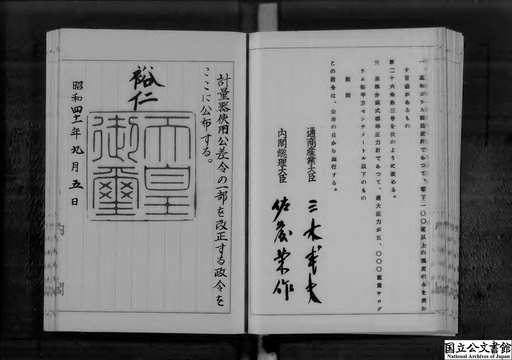 計量器使用公差令の一部を改正する政令を
ここに公布する。
裕仁
天皇
御璽
昭和四十一年九月五日
す目盛があるもの
第二十六条第三号を次のように改める。
附則
この政令は、公布の日から施行する。
通商産業大臣 三木武夫
内閣総理大臣 佐藤栄作
国立公文書館
National Archives of Japan